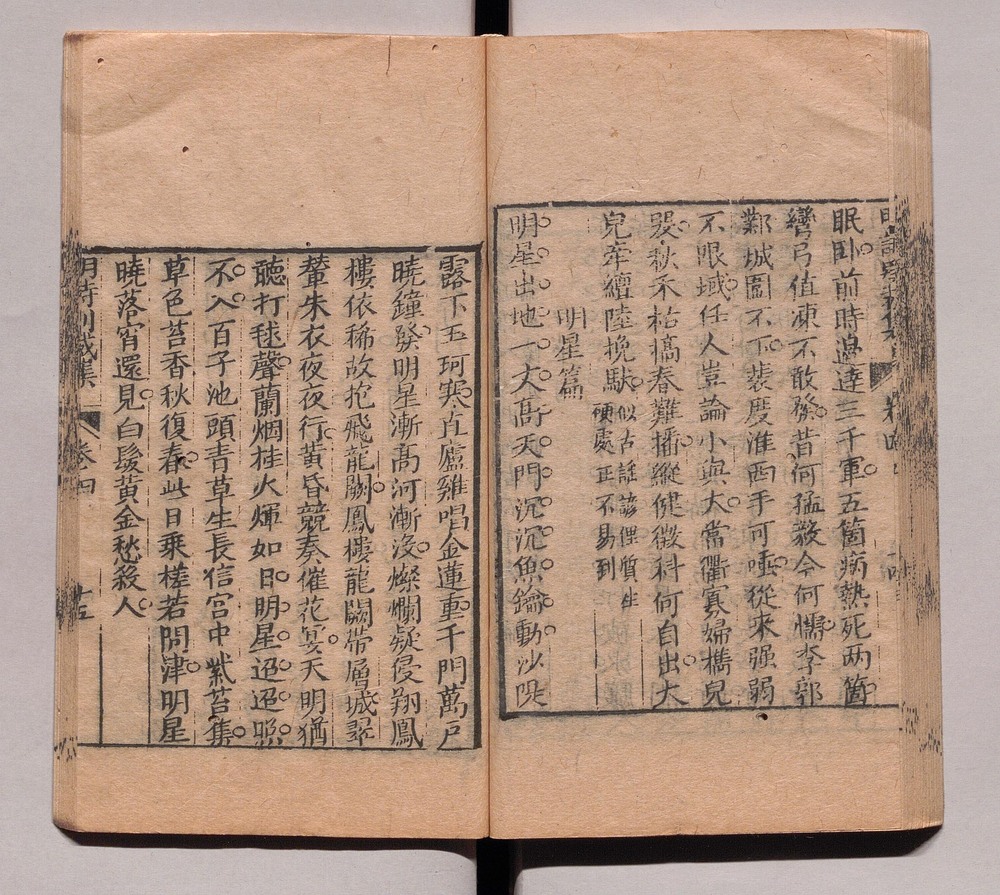 眠卧前時邉逹三千軍五箇病熱死两箇
彎弓值凍不敢發昔何猛毅今何懦李郭
鄴城圍不下裴度淮西手可唾從來强弱
不限域任人豈論小與大當衢寡婦㩗兒
哭秋禾枯槁春難播縱健徵科何自出大
兒牽纜陸挽馱
似古謡諺俚質生
硬處正不易到
明星篇
明星出地一丈高天門沉沉魚鑰動沙隄
露下玉珂寒直廬雞唱金蓮重千門萬户
曉鐘發明星漸髙河漸沒燦爛疑侵翔鳳
樓依稀故抱飛龍闕鳳樓龍闕帶層城翠
輦朱衣夜夜行黄昏競奏催花宴天明猶
聽打毬聲蘭烟桂火煇如日明星迢迢照
不入百子池頭青草生長信宮中紫苔集
草色苔香秋復春此日乗槎若問津明星
曉落宵還見白髮黄金愁殺人
明詩别裁集 卷四 十五